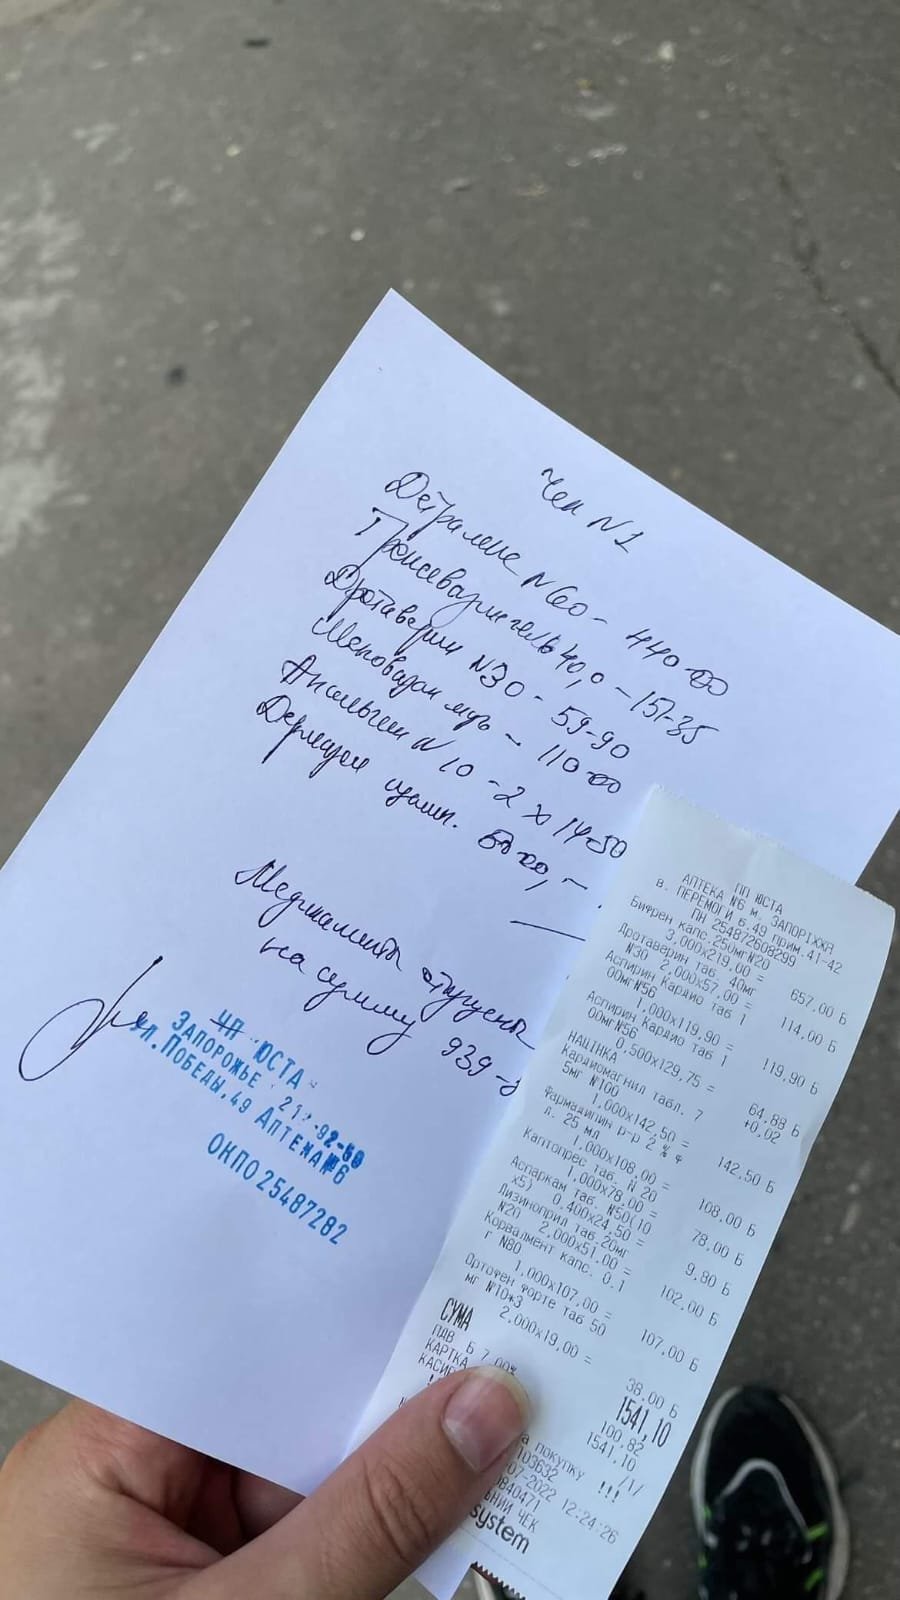 Чек N1
Детралекс N60 - 440-00
Троксевазин гель 40,0 - 151-35
Дротаверин N30 - 59-90
Меновазин мазь - 110-00
Анальгин N10 - 2 x 14-50
Медикаменты отпущены
на сумму 939-
ЧП ЮСТА
ЗАПОРОЖЬЕ
УЛ. ПОБЕДЫ, 49 АПТЕКА №6
ОКПО 25487282
ПП ЮСТА
АПТЕКА №6 м. ЗАПОРІЖЖЯ
в. ПЕРЕМОГИ б.49 прим.41-42
ПН 254872608299
Бифрен капс.250мг№20
3,000x219,00 = 657,00 Б
Дротаверин таб. 40мг
№30 2,000x57,00 = 114,00 Б
Аспирин Кардио таб 1
00мг№56
1,000x119,90 = 119,90 Б
Аспирин Кардио таб 1
00мг№56
0,500x129,75 = 64,88 Б
НАЦІНКА +0.02
Кардиомагнил табл. 7
5мг №100
1,000x142,50 = 142,50 Б
Фармадипин р-р 2% ф
л. 25 мл
1,000x108,00 = 108,00 Б
Каптопрес таб. N 20
1,000x78,00 = 78,00 Б
Аспаркам таб. №50(10
x5) 0,400x24,50 = 9,80 Б
Лизиноприл таб.20мг
№20 2,000x51,00 = 102,00 Б
Корвалмент капс. 0.1
г №80
1,000x107,00 = 107,00 Б
Ортофен форте таб 50
мг №10*3
2,000x19,00 = 38,00 Б
СУМА 1541,10
ПДВ Б 7,00% 100,82
КАРТКА 1541,10
КАСИР /1/
покупку !!!
103632
07-2022 12:24:26
ЧЕК
system